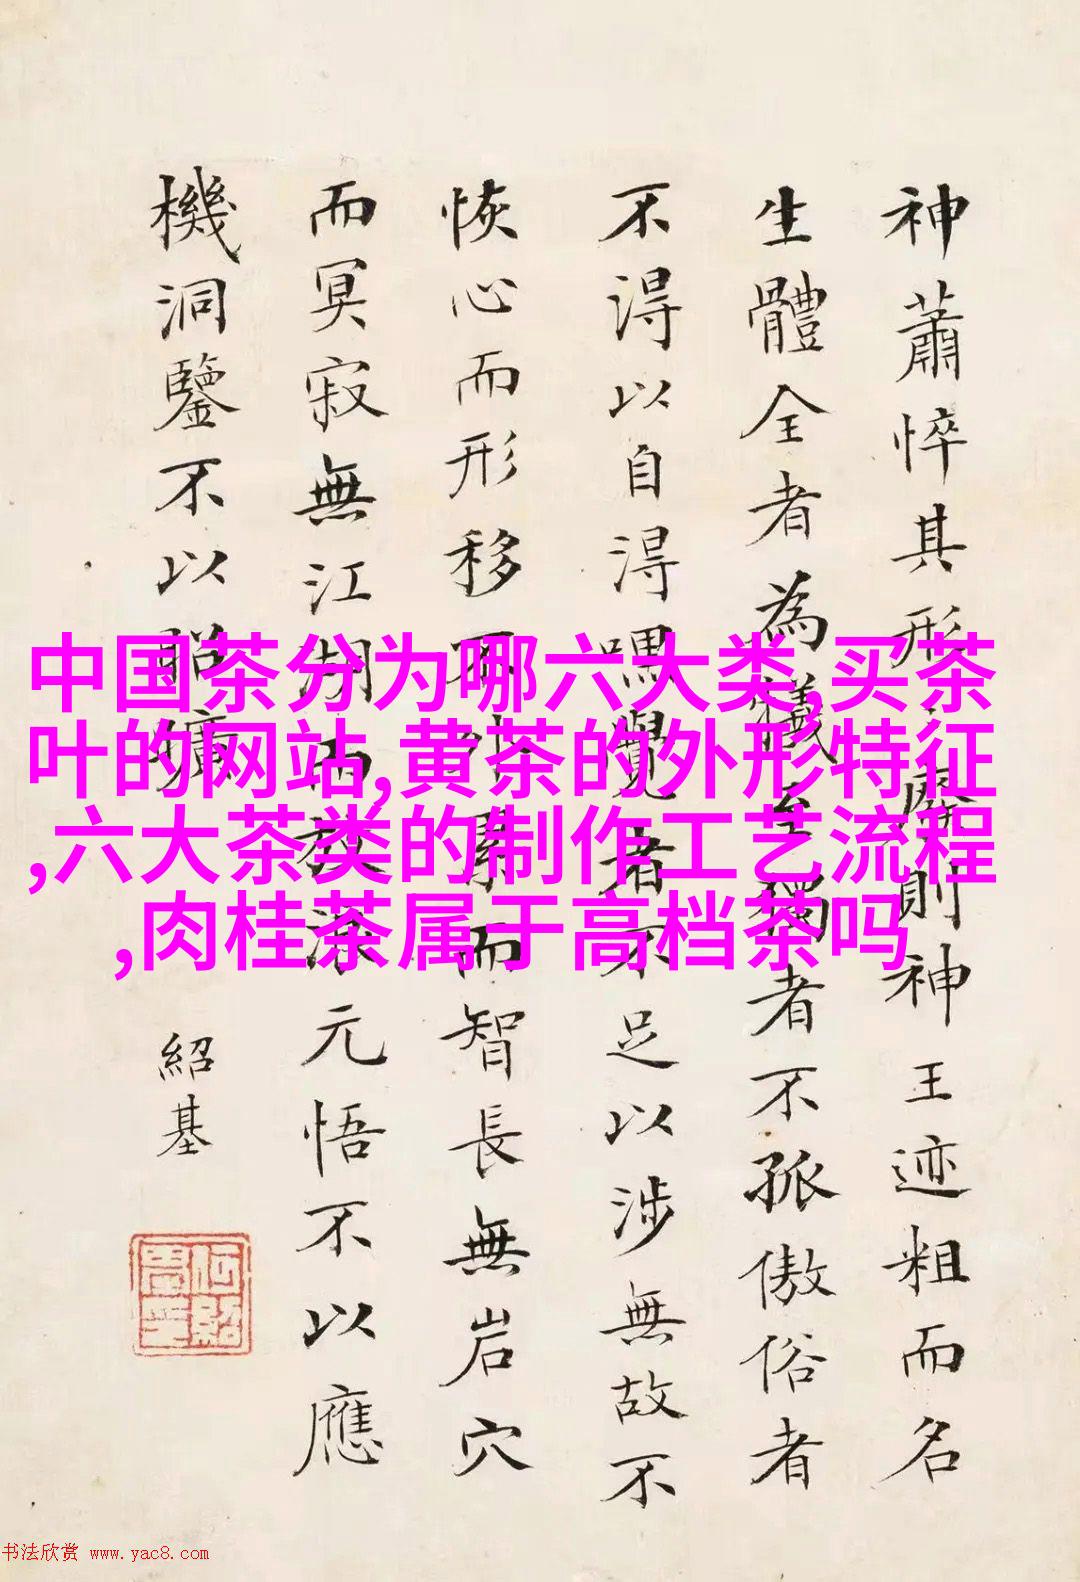 神蕭悴其形廢則神王迹粗而名
生體全者為犧至獨者不孤傲俗者
不得以自得嘿覺者不足以涉無故不
恢心而形移不累而智長無岩穴
而冥寂無江湖而放浪元悟不以應
機洞鑒不以昭曠
紹基
中国茶分为哪六大类,买茶
叶的网站,黄茶的外形特征
,六大茶类的制作工艺流程
,肉桂茶属于高档茶吗
书法欣赏 www.yac8.com